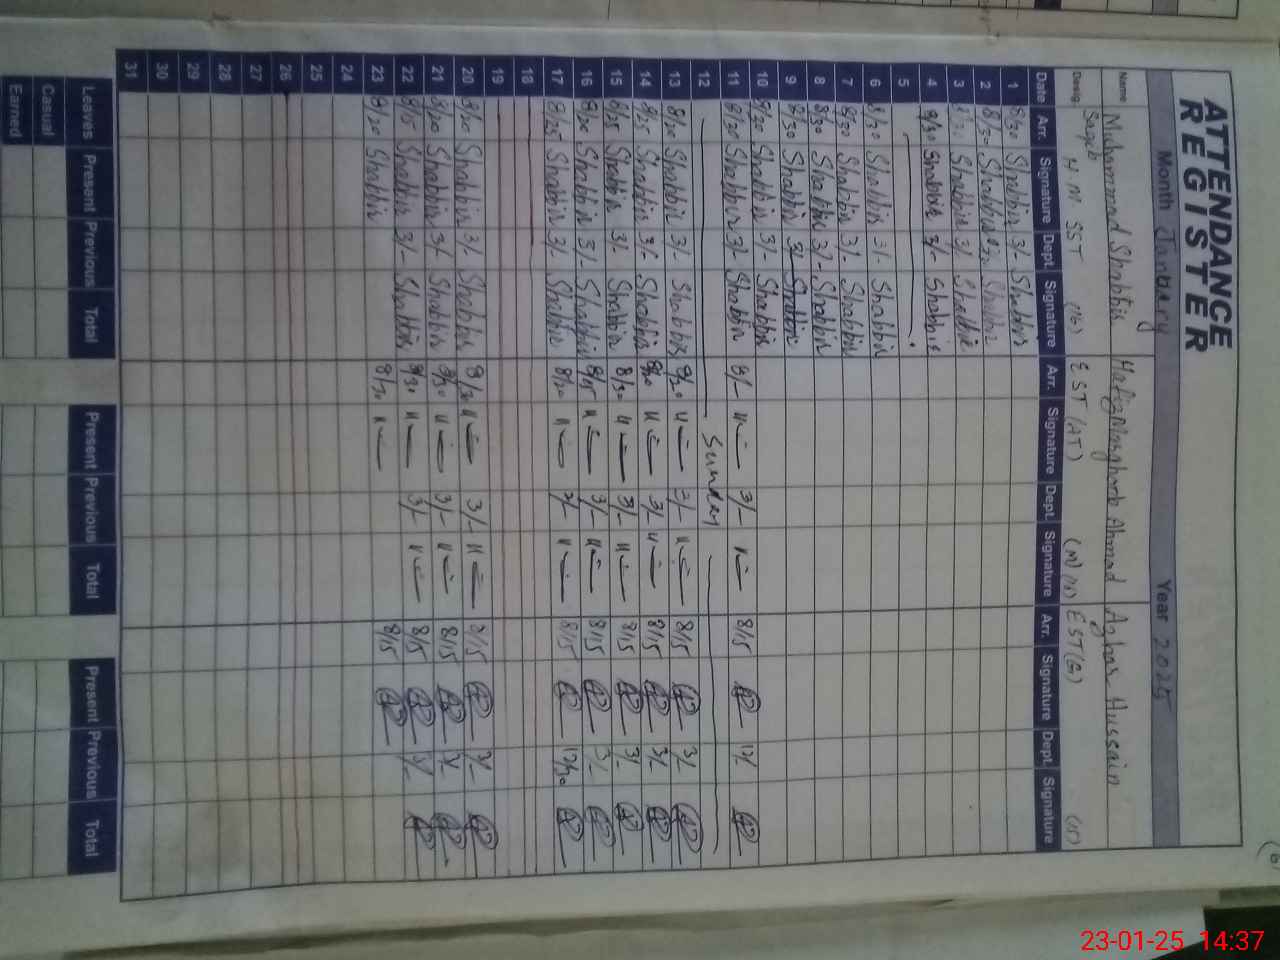 ATTENDANCE
REGISTER
Month January Year 2025
Name Muhammad Shabbir Hafiz Ahmad Azhar Hussain
Desig. H M SST (16) EST (AT) EST (G) (15)
Date Arr. Signature Dept. Signature Arr. Signature Dept. Signature Arr. Signature Dept. Signature
1 8/30 Shabbir 3/- Shabbir
2 8/30 Shabbir Shabbir
3 8/30 Shabbir 3/- Shabbir
4 8/30 Shabbir 3/- Shabbir
5
6 8/30 Shabbir 3/- Shabbir
7 8/30 Shabbir 3/- Shabbir
8 8/30 Shabbir 3/- Shabbir
9 8/30 Shabbir 3/- Shabbir
10 8/30 Shabbir 3/- Shabbir
11 8/30 Shabbir 3/- Shabbir 8/- 3/- 8/15 12/-
12 Sunday
13 8/20 Shabbir 3/- Shabbir 8/20 3/- 8/15 3/-
14 8/25 Shabbir 3/- Shabbir 8/20 3/- 8/15 3/-
15 8/25 Shabbir 3/- Shabbir 8/30 3/- 8/15 3/-
16 8/20 Shabbir 3/- Shabbir 8/15 3/- 8/15 3/-
17 8/25 Shabbir 3/- Shabbir 8/20 8/15 12/30
18
19
20 8/20 Shabbir 3/- Shabbir 8/30 3/- 8/15 3/-
21 8/20 Shabbir 3/- Shabbir 8/30 3/- 8/15 3/-
22 8/15 Shabbir 3/- Shabbir 8/30 3/- 8/15 3/-
23 8/20 Shabbir 8/30 8/15
24
25
26
27
28
29
30
31
Leaves Present Previous Total Present Previous Total Present Previous Total
Casual
Earned
23-01-25 14:37